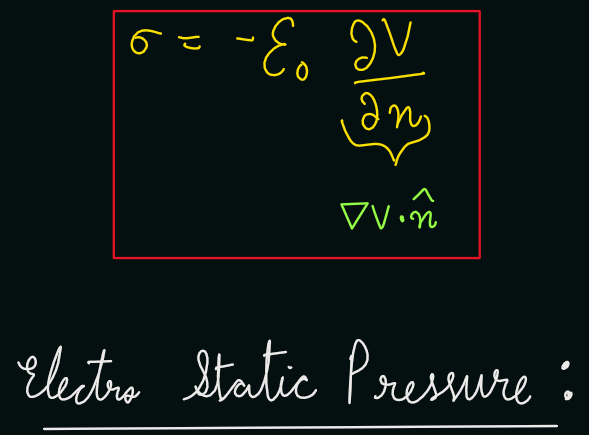 σ = -ε₀ ∂V/∂n
∇V·n̂
Electro Static Pressure :